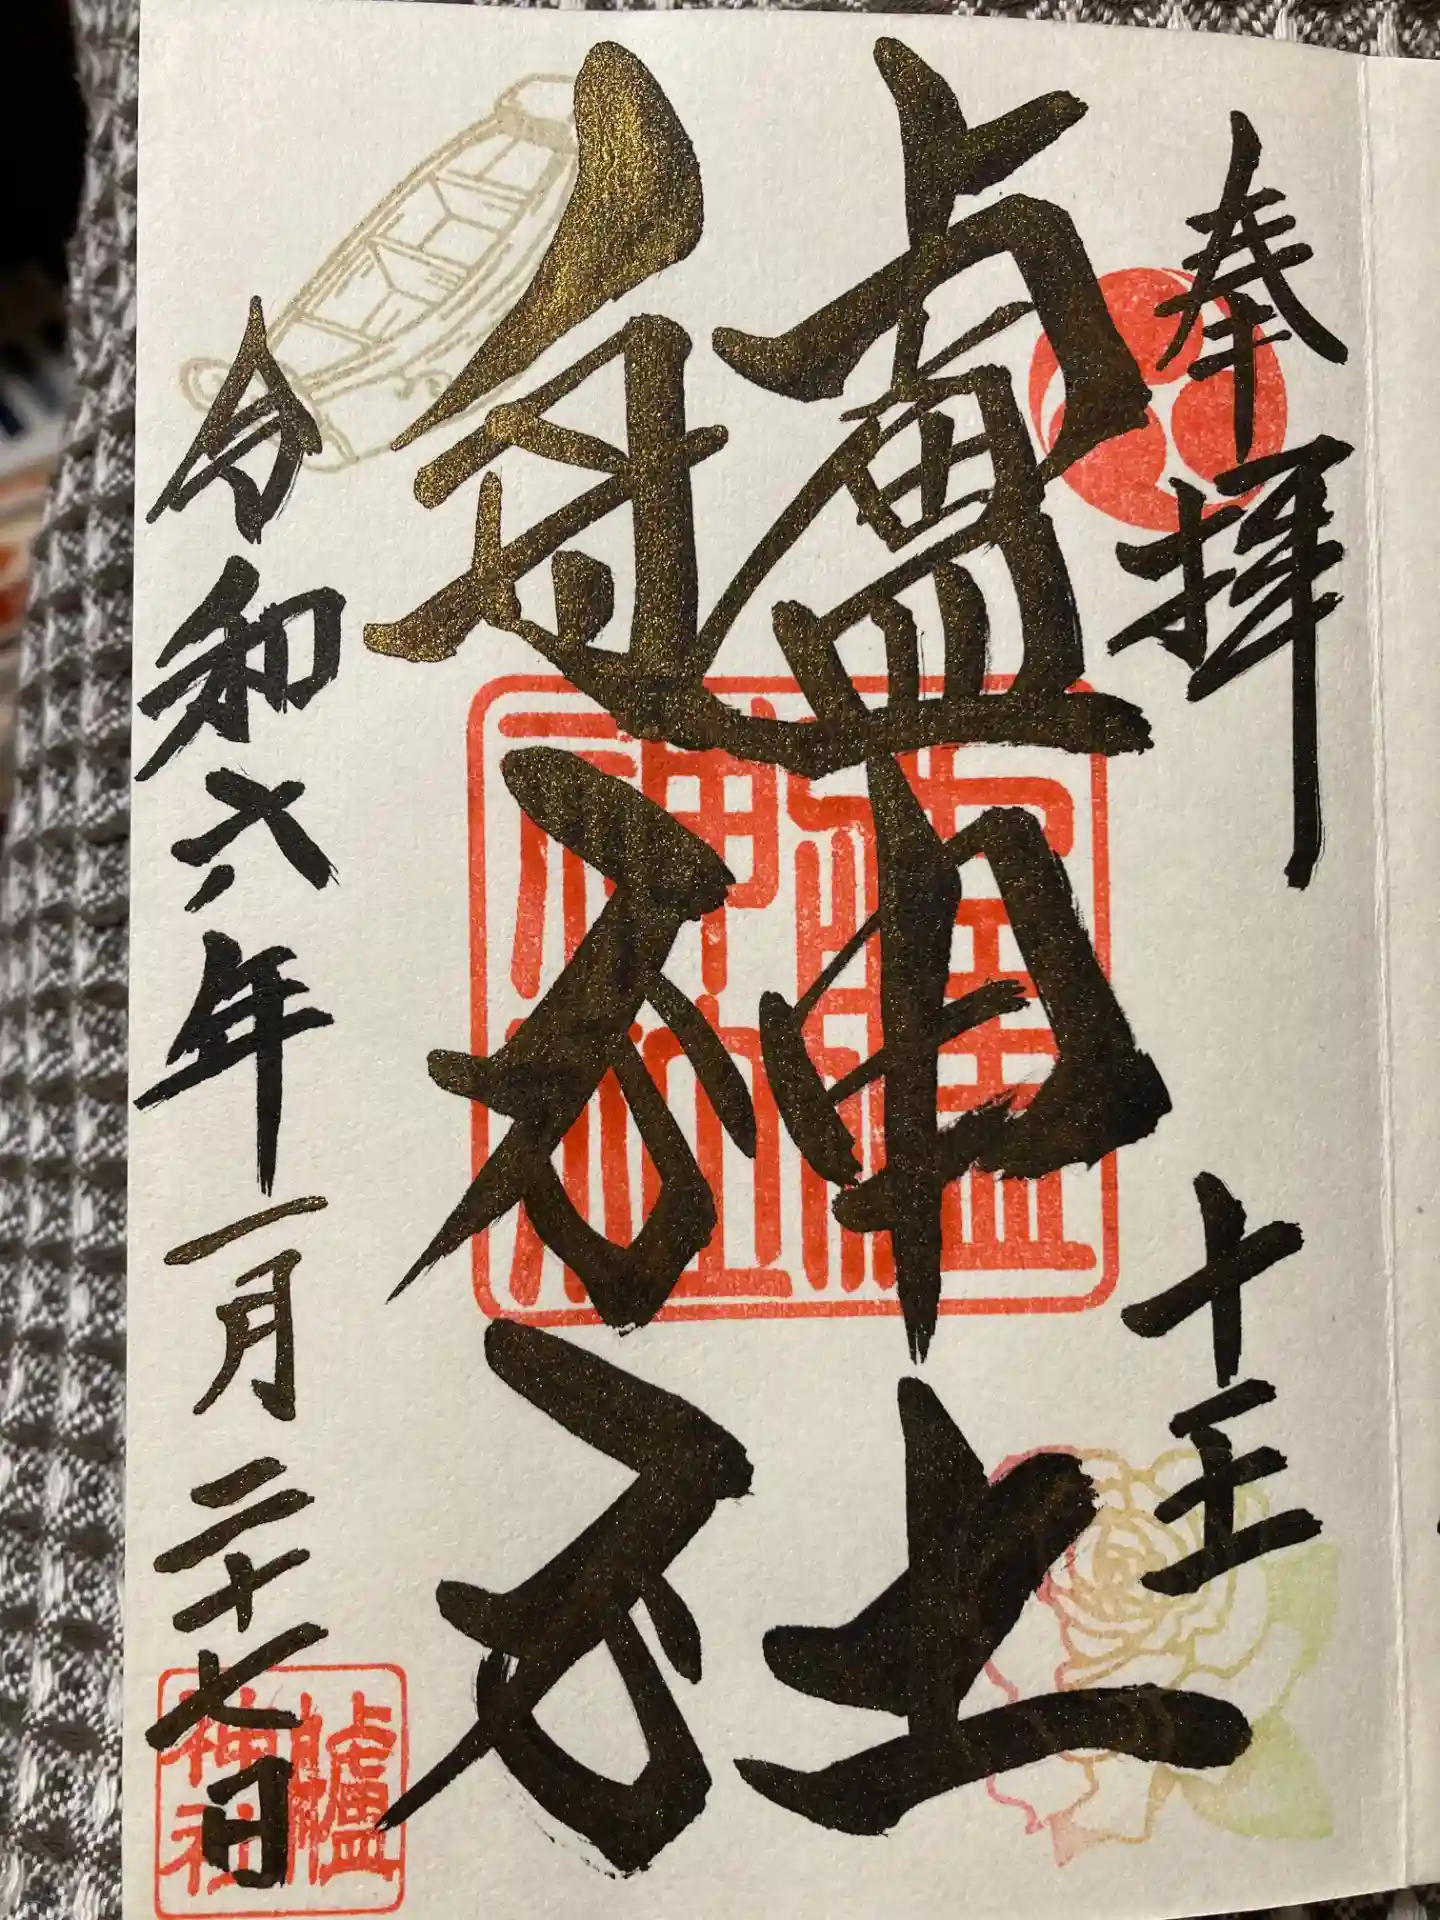 奉拝
十王
艫神社
令和六年一月二十七日
艫神社
艫神社